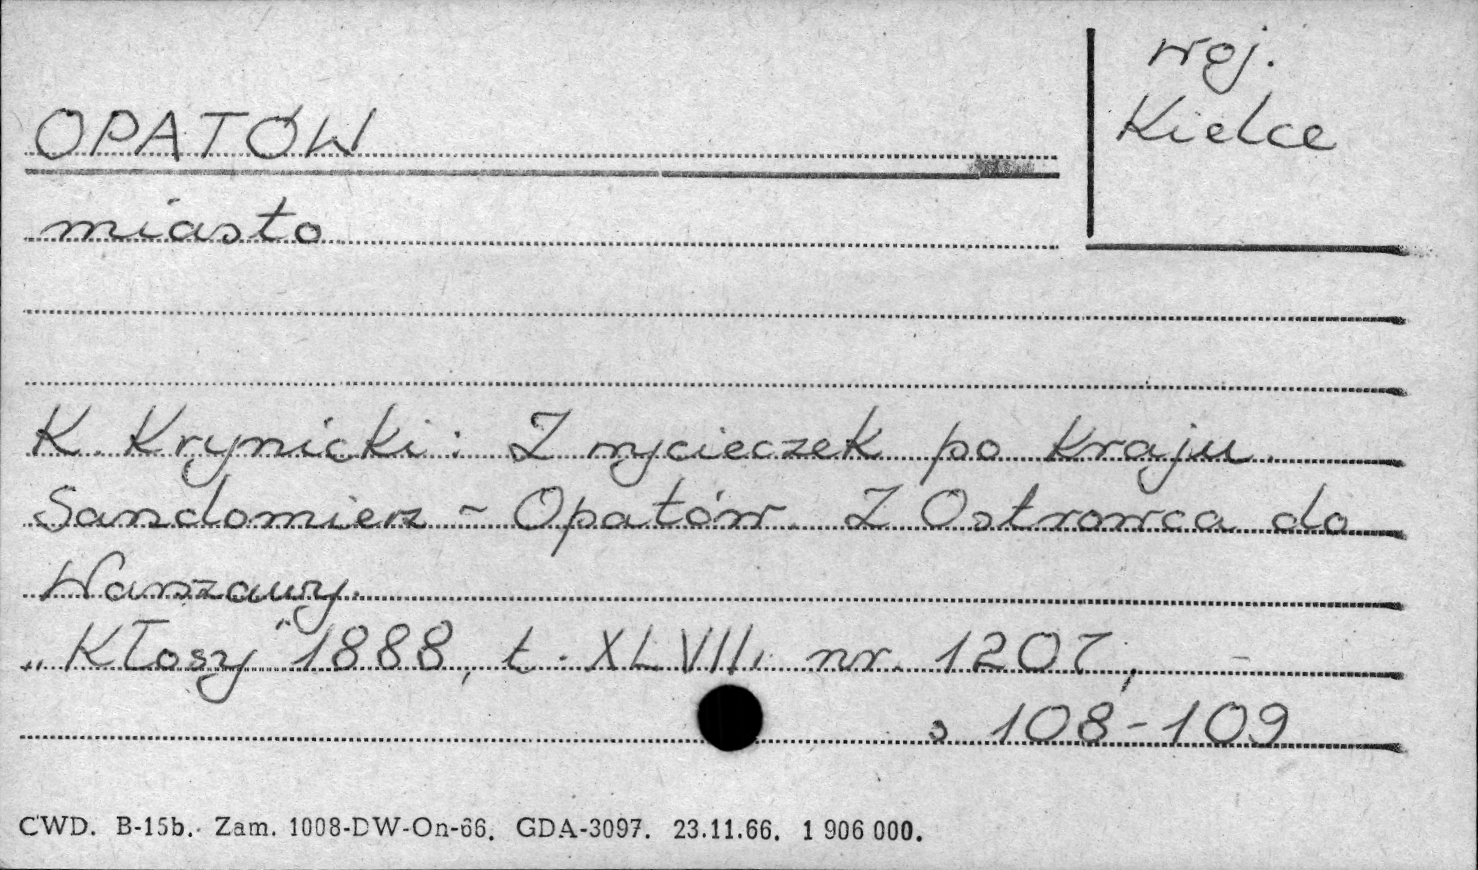 woj.
Kielce
OPATÓW
miasto
K. Krynicki: Z wycieczek po kraju.
Sandomierz - Opatów. Z Ostrowca do
Warszawy.
„Kłosy" 1888, t. XLVII, nr. 1207, -
s 108-109
CWD. B-15b. Zam. 1008-DW-On-66. GDA-3097. 23.11.66. 1 906 000.